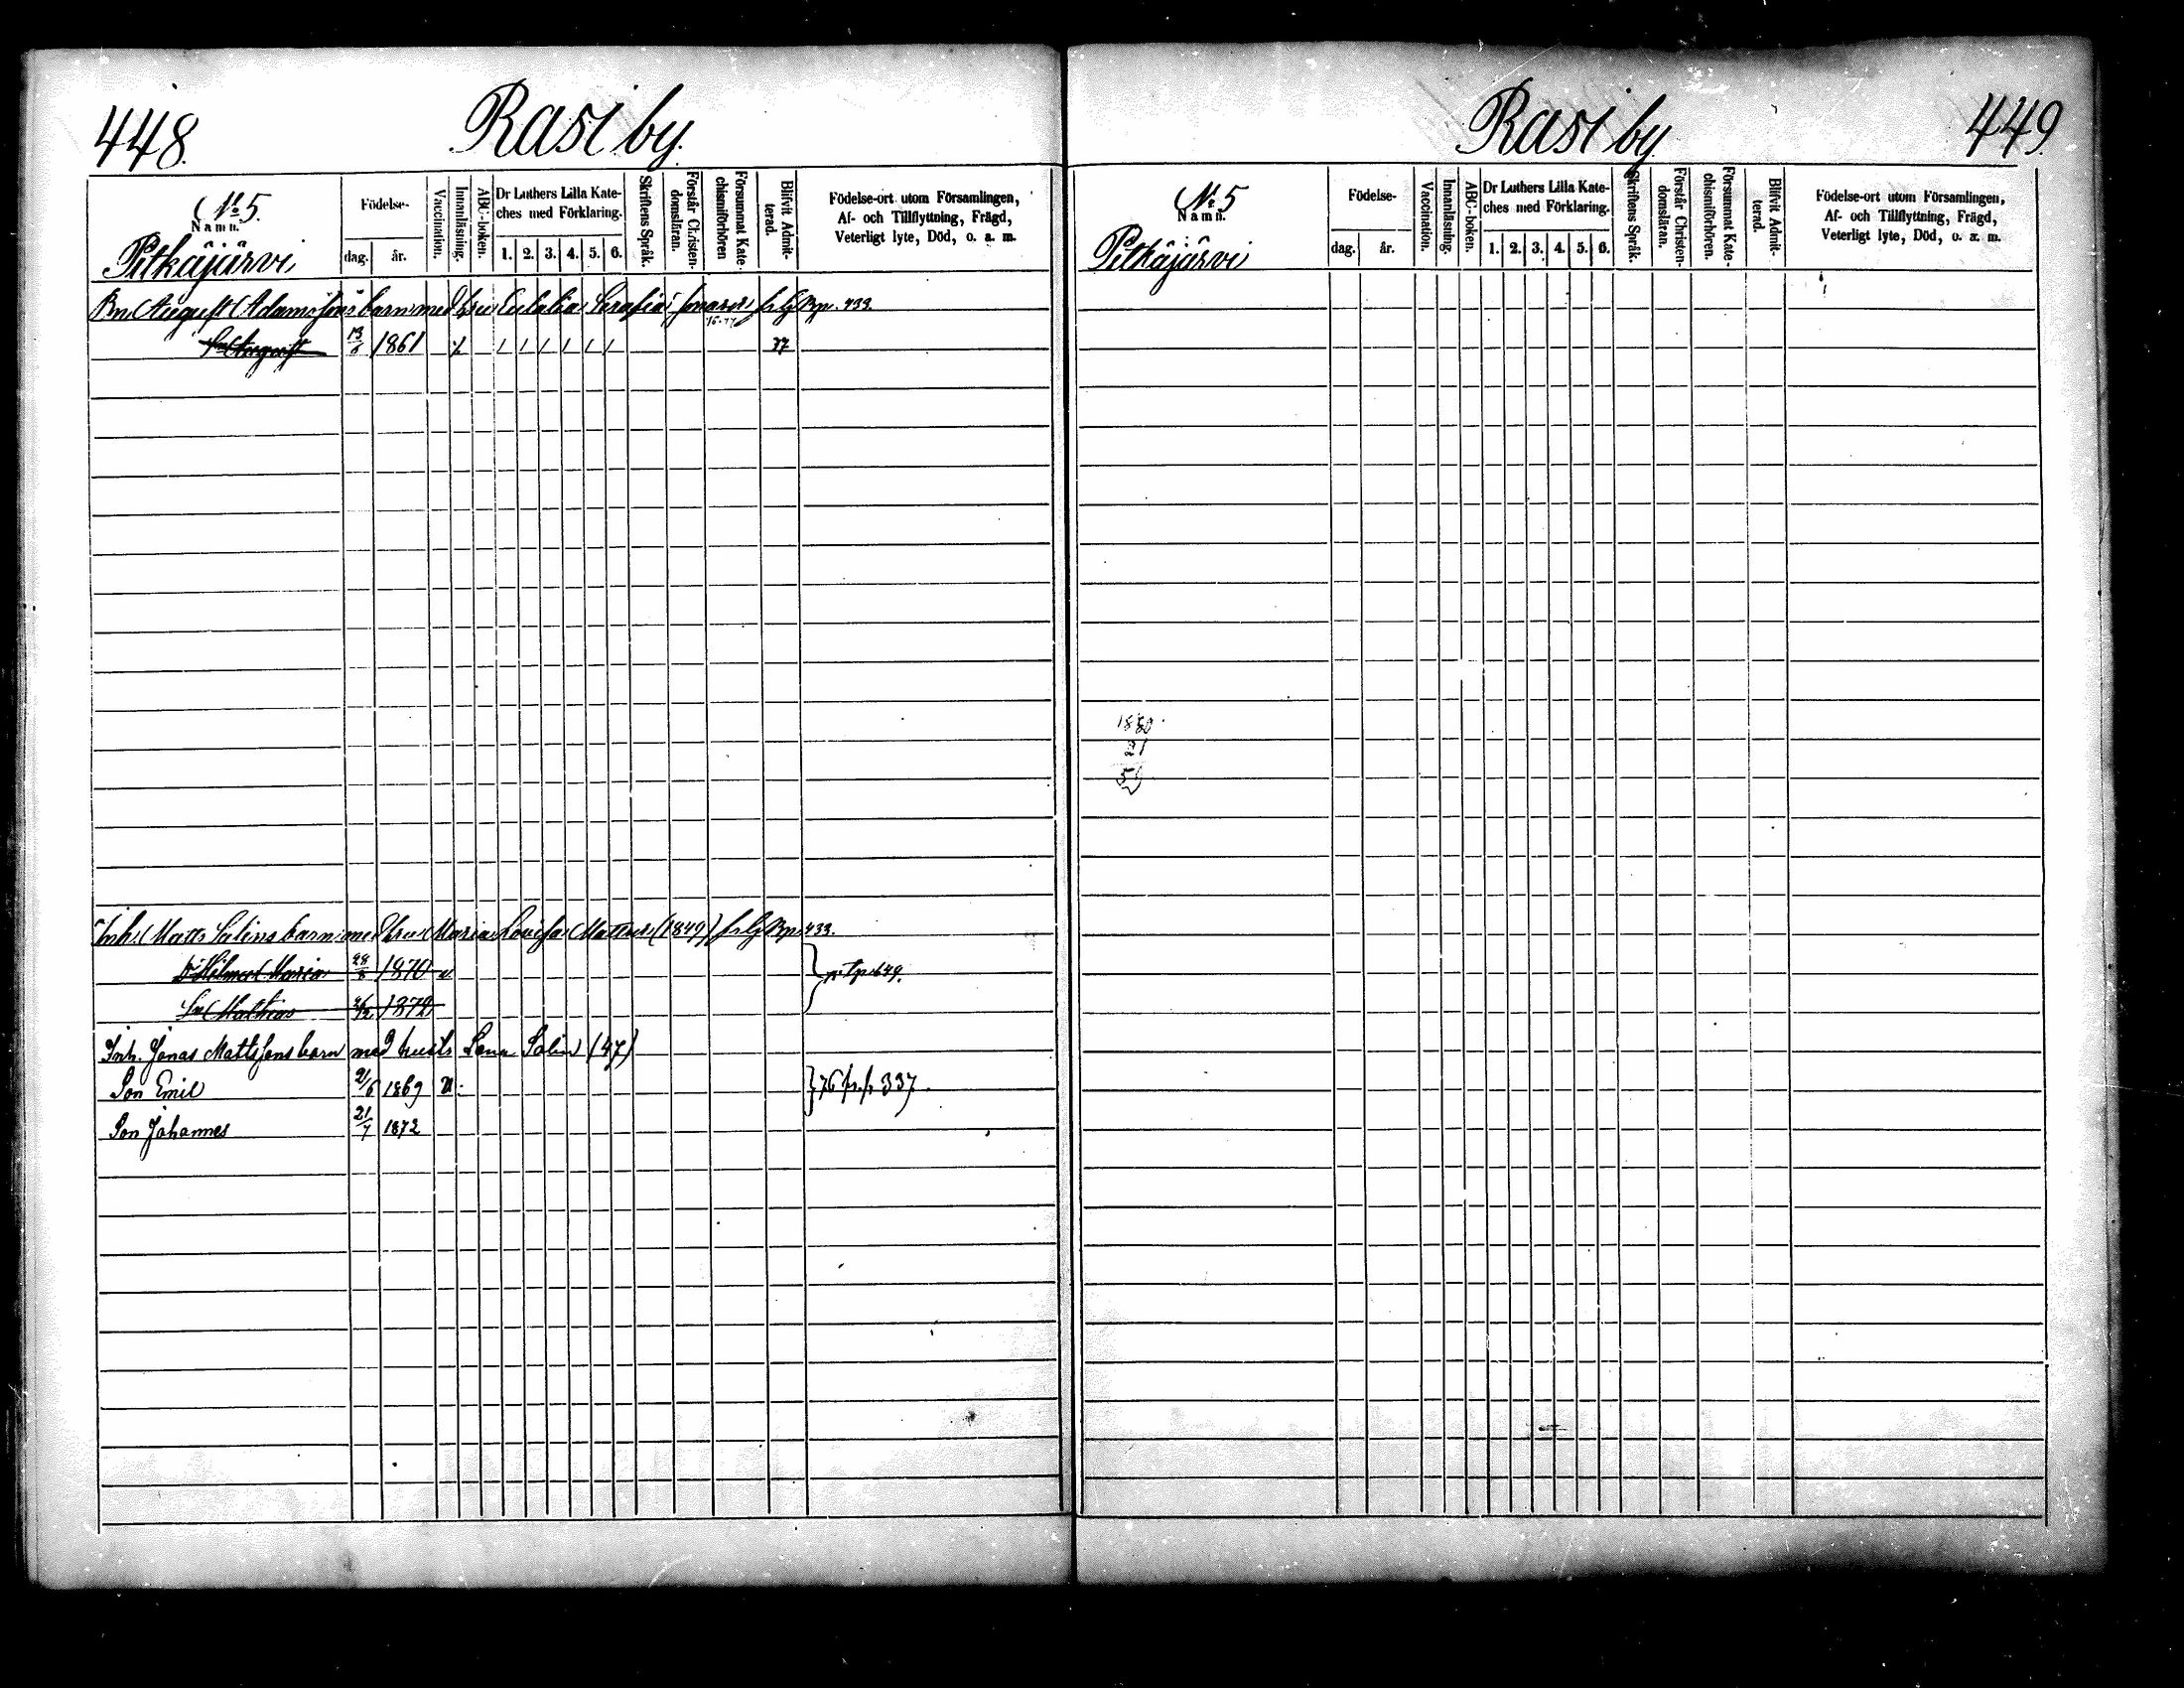 448.
Rasi by.
No 5.
Namn.
Pitkäjärvi
Födelse-
dag.
år.
Vaccination.
Innanläsning.
ABC-boken.
Dr Luthers Lilla Kate-
ches med Förklaring.
1. 2. 3. 4. 5. 6.
Skriftens Språk.
Förstår Christen-
domsläran.
Försummat Kate-
chismiförhören
Blifvit Admit-
terad.
Födelse-ort utom Församlingen,
Af- och Tillflyttning, Frägd,
Veterligt lyte, Död, o. a. m.
Bn August Adamssons barn med hru Eulalia Serafia 433.
Sn August 13/8 1861 77
Inh. Matts Salins barn med hru Maria Lovisa Mattsdr (1849) 433.
D Hilma Maria 28/8 1870 v 649.
Sn Mathias 26/12 1872
Inh. Jonas Mattssons barn med hustr Lena Salin (47)
Son Emil 21/6 1869 v. 76 337.
Son Johannes 21/7 1872
Rasi by
449.
No 5
Namn.
Pitkäjärvi
Födelse-
dag.
år.
Vaccination.
Innanläsning.
ABC-boken.
Dr Luthers Lilla Kate-
ches med Förklaring.
1. 2. 3. 4. 5. 6.
Skriftens Språk.
Förstår Christen-
domsläran.
Försummat Kate-
chismiförhören.
Blifvit Admit-
terad.
Födelse-ort utom Församlingen,
Af- och Tillflyttning, Frägd,
Veterligt lyte, Död, o. a. m.
1880
21
59